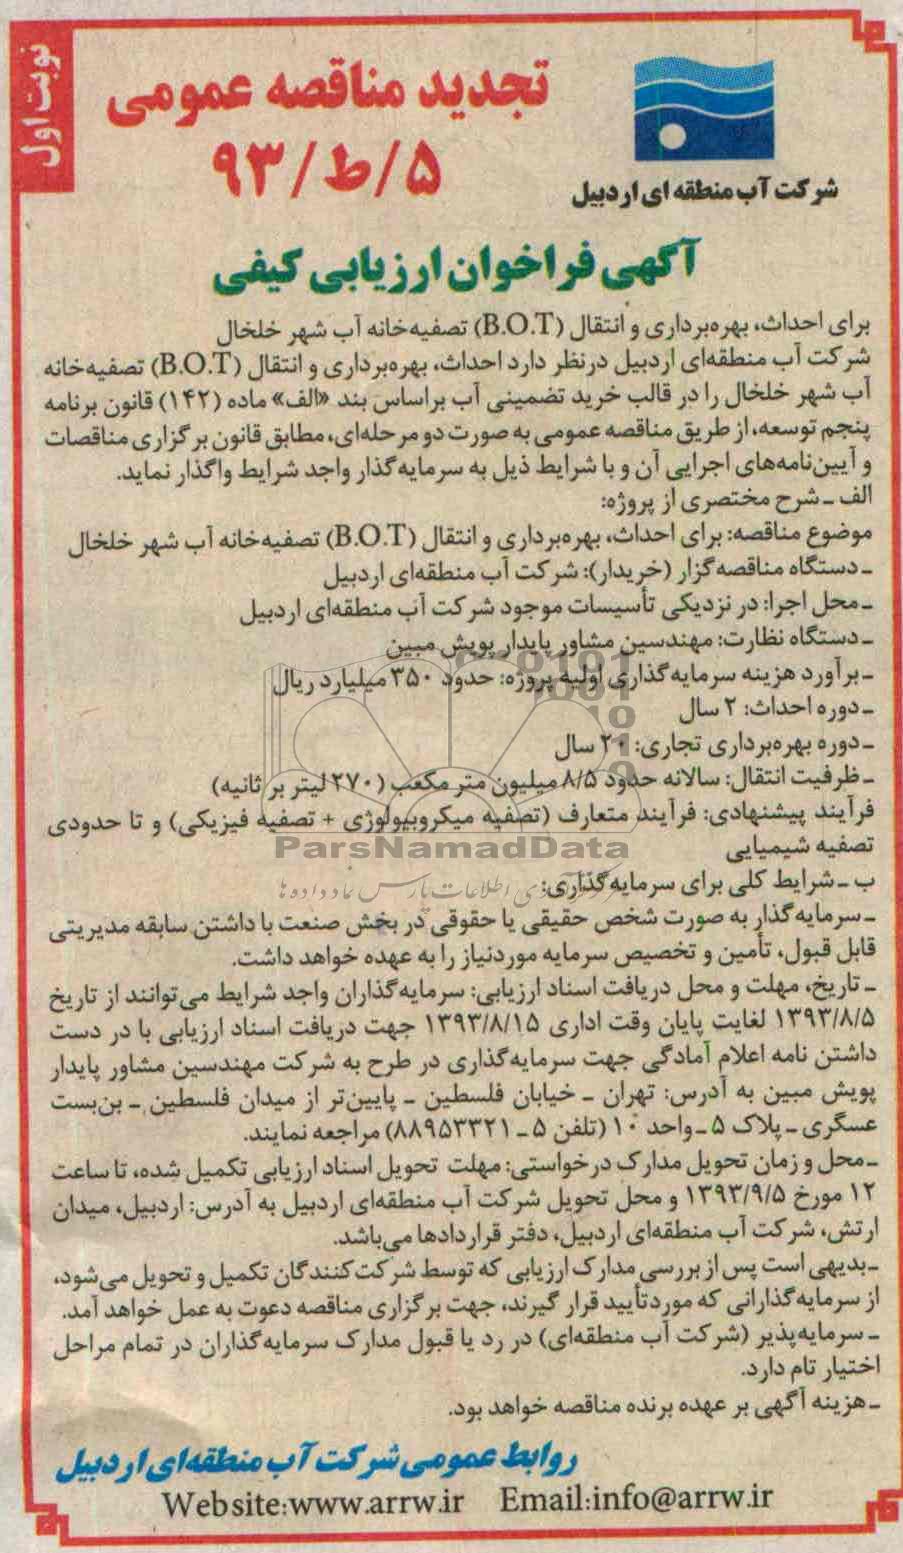 نوبت اول
تجدید مناقصه عمومی
۵/ط/۹۳
شرکت آب منطقه ای اردبیل
آگهی فراخوان ارزیابی کیفی
برای احداث، بهره‌برداری و انتقال (B.O.T) تصفیه‌خانه آب شهر خلخال
شرکت آب منطقه‌ای اردبیل درنظر دارد احداث، بهره‌برداری و انتقال (B.O.T) تصفیه‌خانه
آب شهر خلخال را در قالب خرید تضمینی آب براساس بند «الف» ماده (۱۴۲) قانون برنامه
پنجم توسعه، از طریق مناقصه عمومی به صورت دو مرحله‌ای، مطابق قانون برگزاری مناقصات
و آیین‌نامه‌های اجرایی آن و با شرایط ذیل به سرمایه‌گذار واجد شرایط واگذار نماید.
الف ـ شرح مختصری از پروژه:
موضوع مناقصه: برای احداث، بهره‌برداری و انتقال (B.O.T) تصفیه‌خانه آب شهر خلخال
ـ دستگاه مناقصه‌گزار (خریدار): شرکت آب منطقه‌ای اردبیل
ـ محل اجرا: در نزدیکی تأسیسات موجود شرکت آب منطقه‌ای اردبیل
ـ دستگاه نظارت: مهندسین مشاور پایدار پویش مبین
ـ برآورد هزینه سرمایه‌گذاری اولیه پروژه: حدود ۳۵۰ میلیارد ریال
ـ دوره احداث: ۲ سال
ـ دوره بهره‌برداری تجاری: ۲۰ سال
ـ ظرفیت انتقال: سالانه حدود ۸/۵ میلیون متر مکعب (۲۷۰ لیتر بر ثانیه)
فرآیند پیشنهادی: فرآیند متعارف (تصفیه میکروبیولوژی + تصفیه فیزیکی) و تا حدودی
تصفیه شیمیایی
ParsNamadData
ب ـ شرایط کلی برای سرمایه‌گذاری:
ـ سرمایه‌گذار به صورت شخص حقیقی یا حقوقی در بخش صنعت با داشتن سابقه مدیریتی
قابل قبول، تأمین و تخصیص سرمایه موردنیاز را به عهده خواهد داشت.
ـ تاریخ، مهلت و محل دریافت اسناد ارزیابی: سرمایه‌گذاران واجد شرایط می‌توانند از تاریخ
۱۳۹۳/۸/۵ لغایت پایان وقت اداری ۱۳۹۳/۸/۱۵ جهت دریافت اسناد ارزیابی با در دست
داشتن نامه اعلام آمادگی جهت سرمایه‌گذاری در طرح به شرکت مهندسین مشاور پایدار
پویش مبین به آدرس: تهران ـ خیابان فلسطین ـ پایین‌تر از میدان فلسطین ـ بن‌بست
عسگری ـ پلاک ۵ ـ واحد ۱۰ (تلفن ۵ ـ ۸۸۹۵۳۳۲۱) مراجعه نمایند.
ـ محل و زمان تحویل مدارک درخواستی: مهلت تحویل اسناد ارزیابی تکمیل شده، تا ساعت
۱۲ مورخ ۱۳۹۳/۹/۵ و محل تحویل شرکت آب منطقه‌ای اردبیل به آدرس: اردبیل، میدان
ارتش، شرکت آب منطقه‌ای اردبیل، دفتر قراردادها می‌باشد.
ـ بدیهی است پس از بررسی مدارک ارزیابی که توسط شرکت‌کنندگان تکمیل و تحویل می‌شود،
از سرمایه‌گذارانی که مورد تأیید قرار گیرند، جهت برگزاری مناقصه دعوت به عمل خواهد آمد.
ـ سرمایه‌پذیر (شرکت آب منطقه‌ای) در رد یا قبول مدارک سرمایه‌گذاران در تمام مراحل
اختیار تام دارد.
ـ هزینه آگهی بر عهده برنده مناقصه خواهد بود.
روابط عمومی شرکت آب منطقه‌ای اردبیل
Website:www.arrw.ir Email:info@arrw.ir